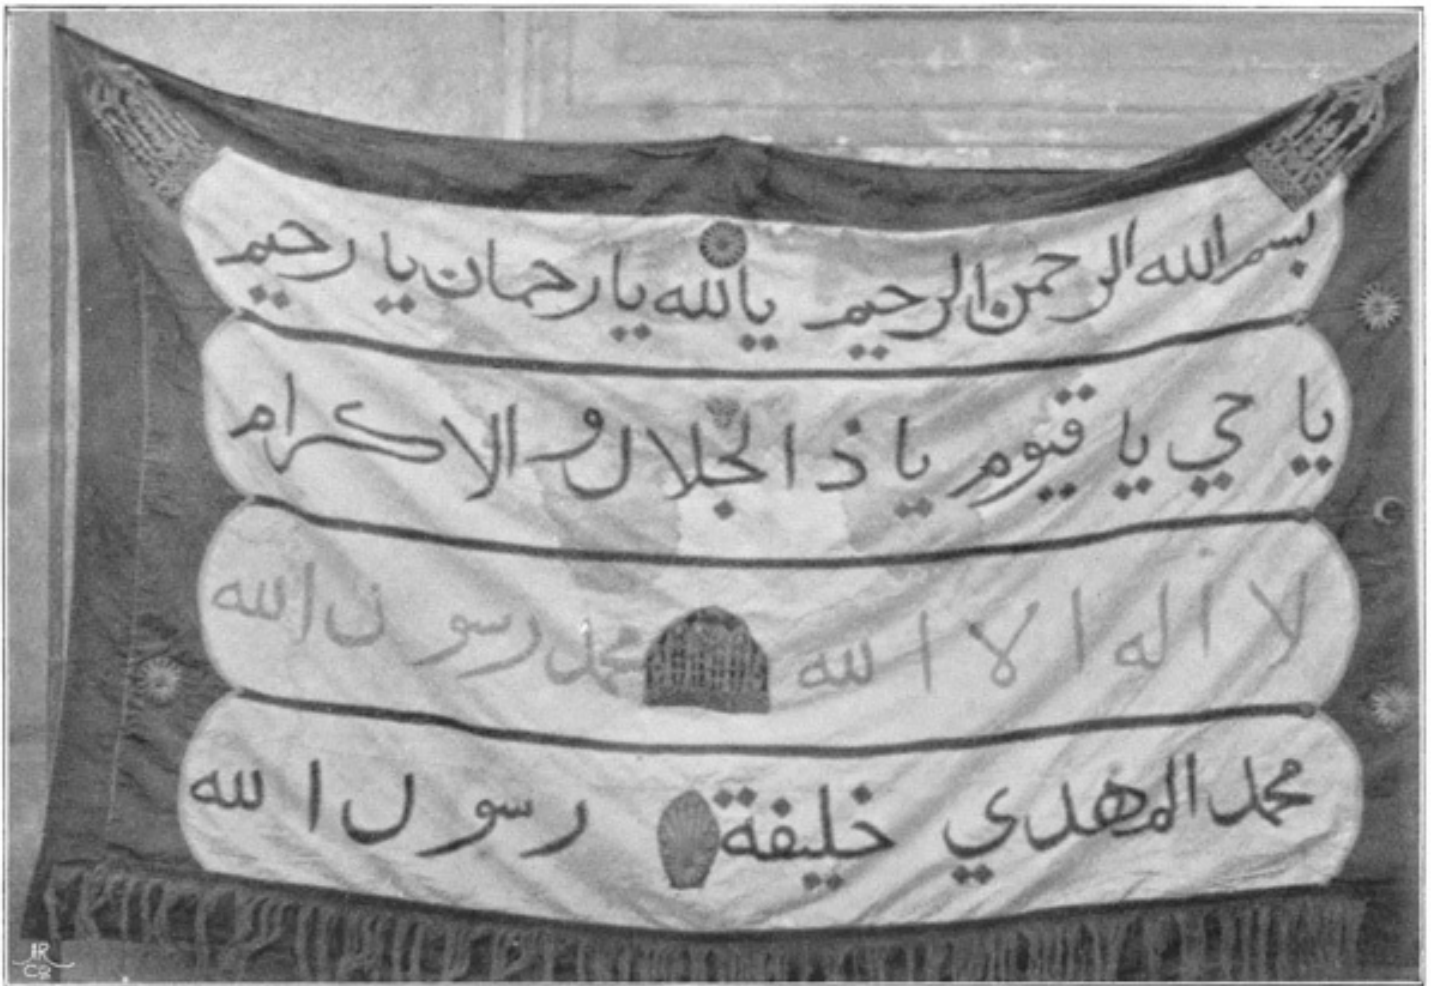 بسم الله الرحمن الرحيم يا الله يا رحمان يا رحيم
يا حي يا قيوم يا ذا الجلال و الاكرام
لا اله الا الله محمد رسول الله
محمد المهدي خليفة رسول الله
JR
Co